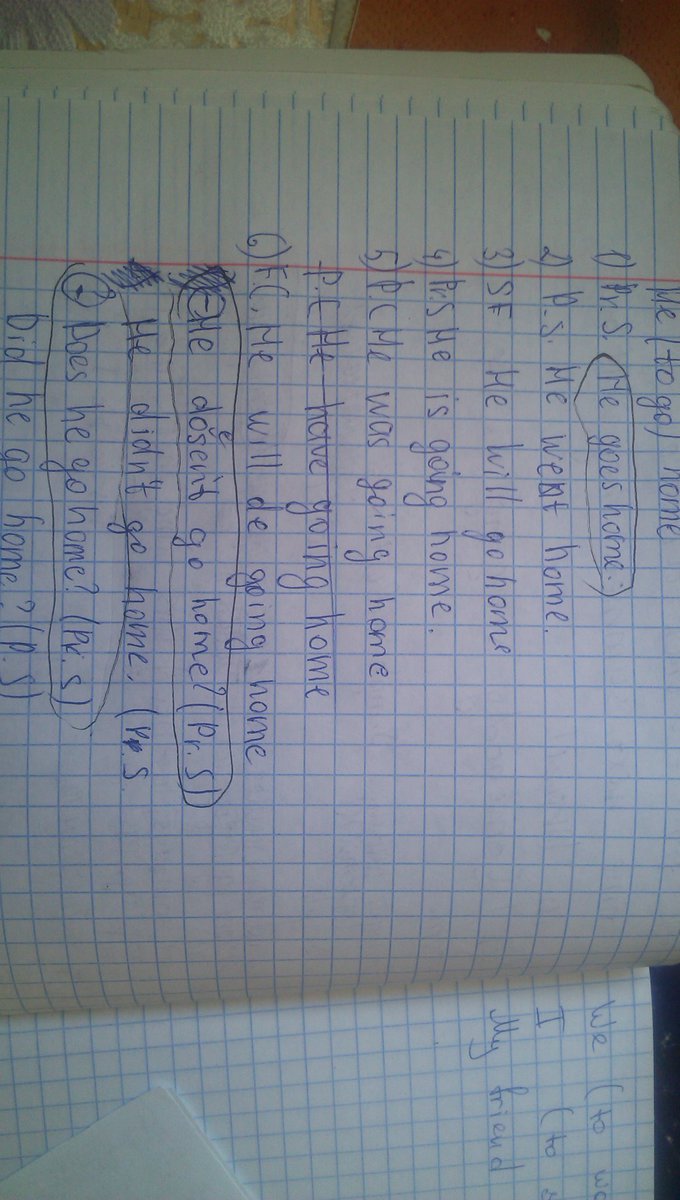 He (to go) home
1) Pr.S. He goes home.
2) P.S. He went home.
3) SF He will go home
4) Pr.S He is going home.
5) P.C He was going home
P.C He have going home
6) F.C. He will de going home
- He doesen't go home? (Pr.S)
He didn't go home. (P.S
Does he go home? (Pr.S)
Did he go home? (P.S)
We (to w
I (to
My friend